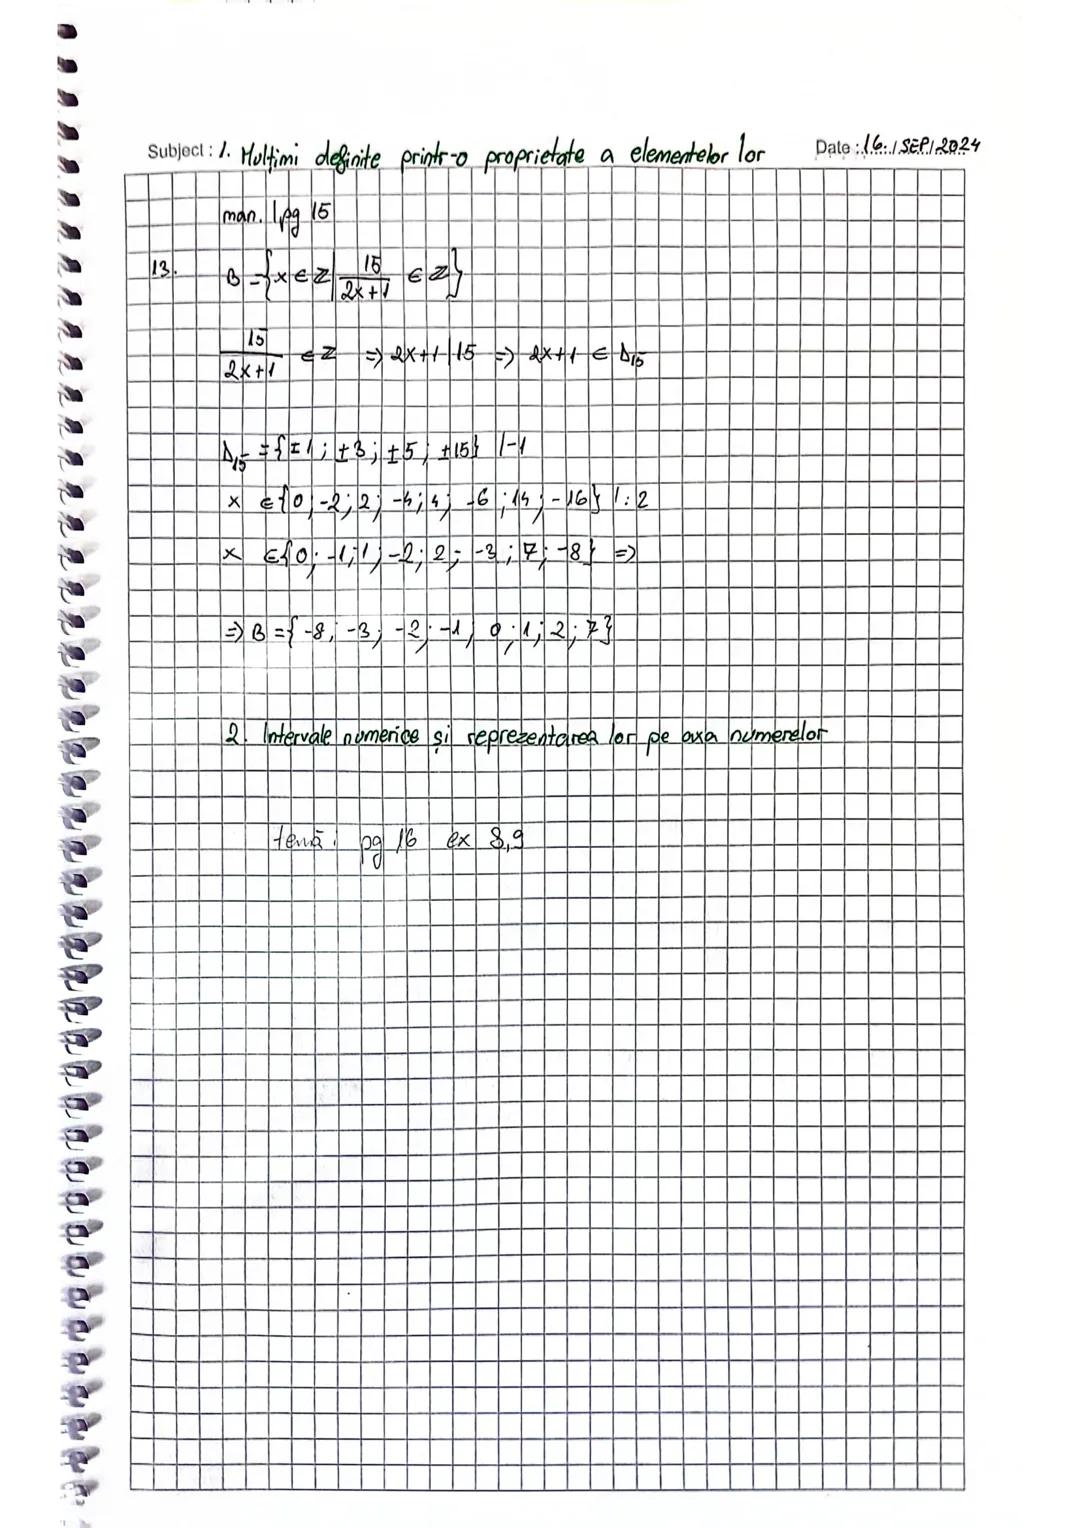 Subject: 1. Mulțimi definite printr-o proprietate a elementelor lor Date: 16. / SEP / 2024
man. | pg 15
13. B = {x ∈ Z | 15/(2x+1) ∈ Z}
15/(2x+1) ∈ Z => 2x+1 | 15 => 2x+1 ∈ D₁₅
D₁₅ = {±1; ±3; ±5; ±15} |-1
x ∈ {0; -2; 2; -4; 4; -6; 14; -16} |:2
x ∈ {0; -1; 1; -2; 2; -3; 7; -8} =>
=> B = {-8; -3; -2; -1; 0; 1; 2; 7}
2. Intervale numerice și reprezentarea lor pe axa numerelor
temă: pg 16 ex 8,9